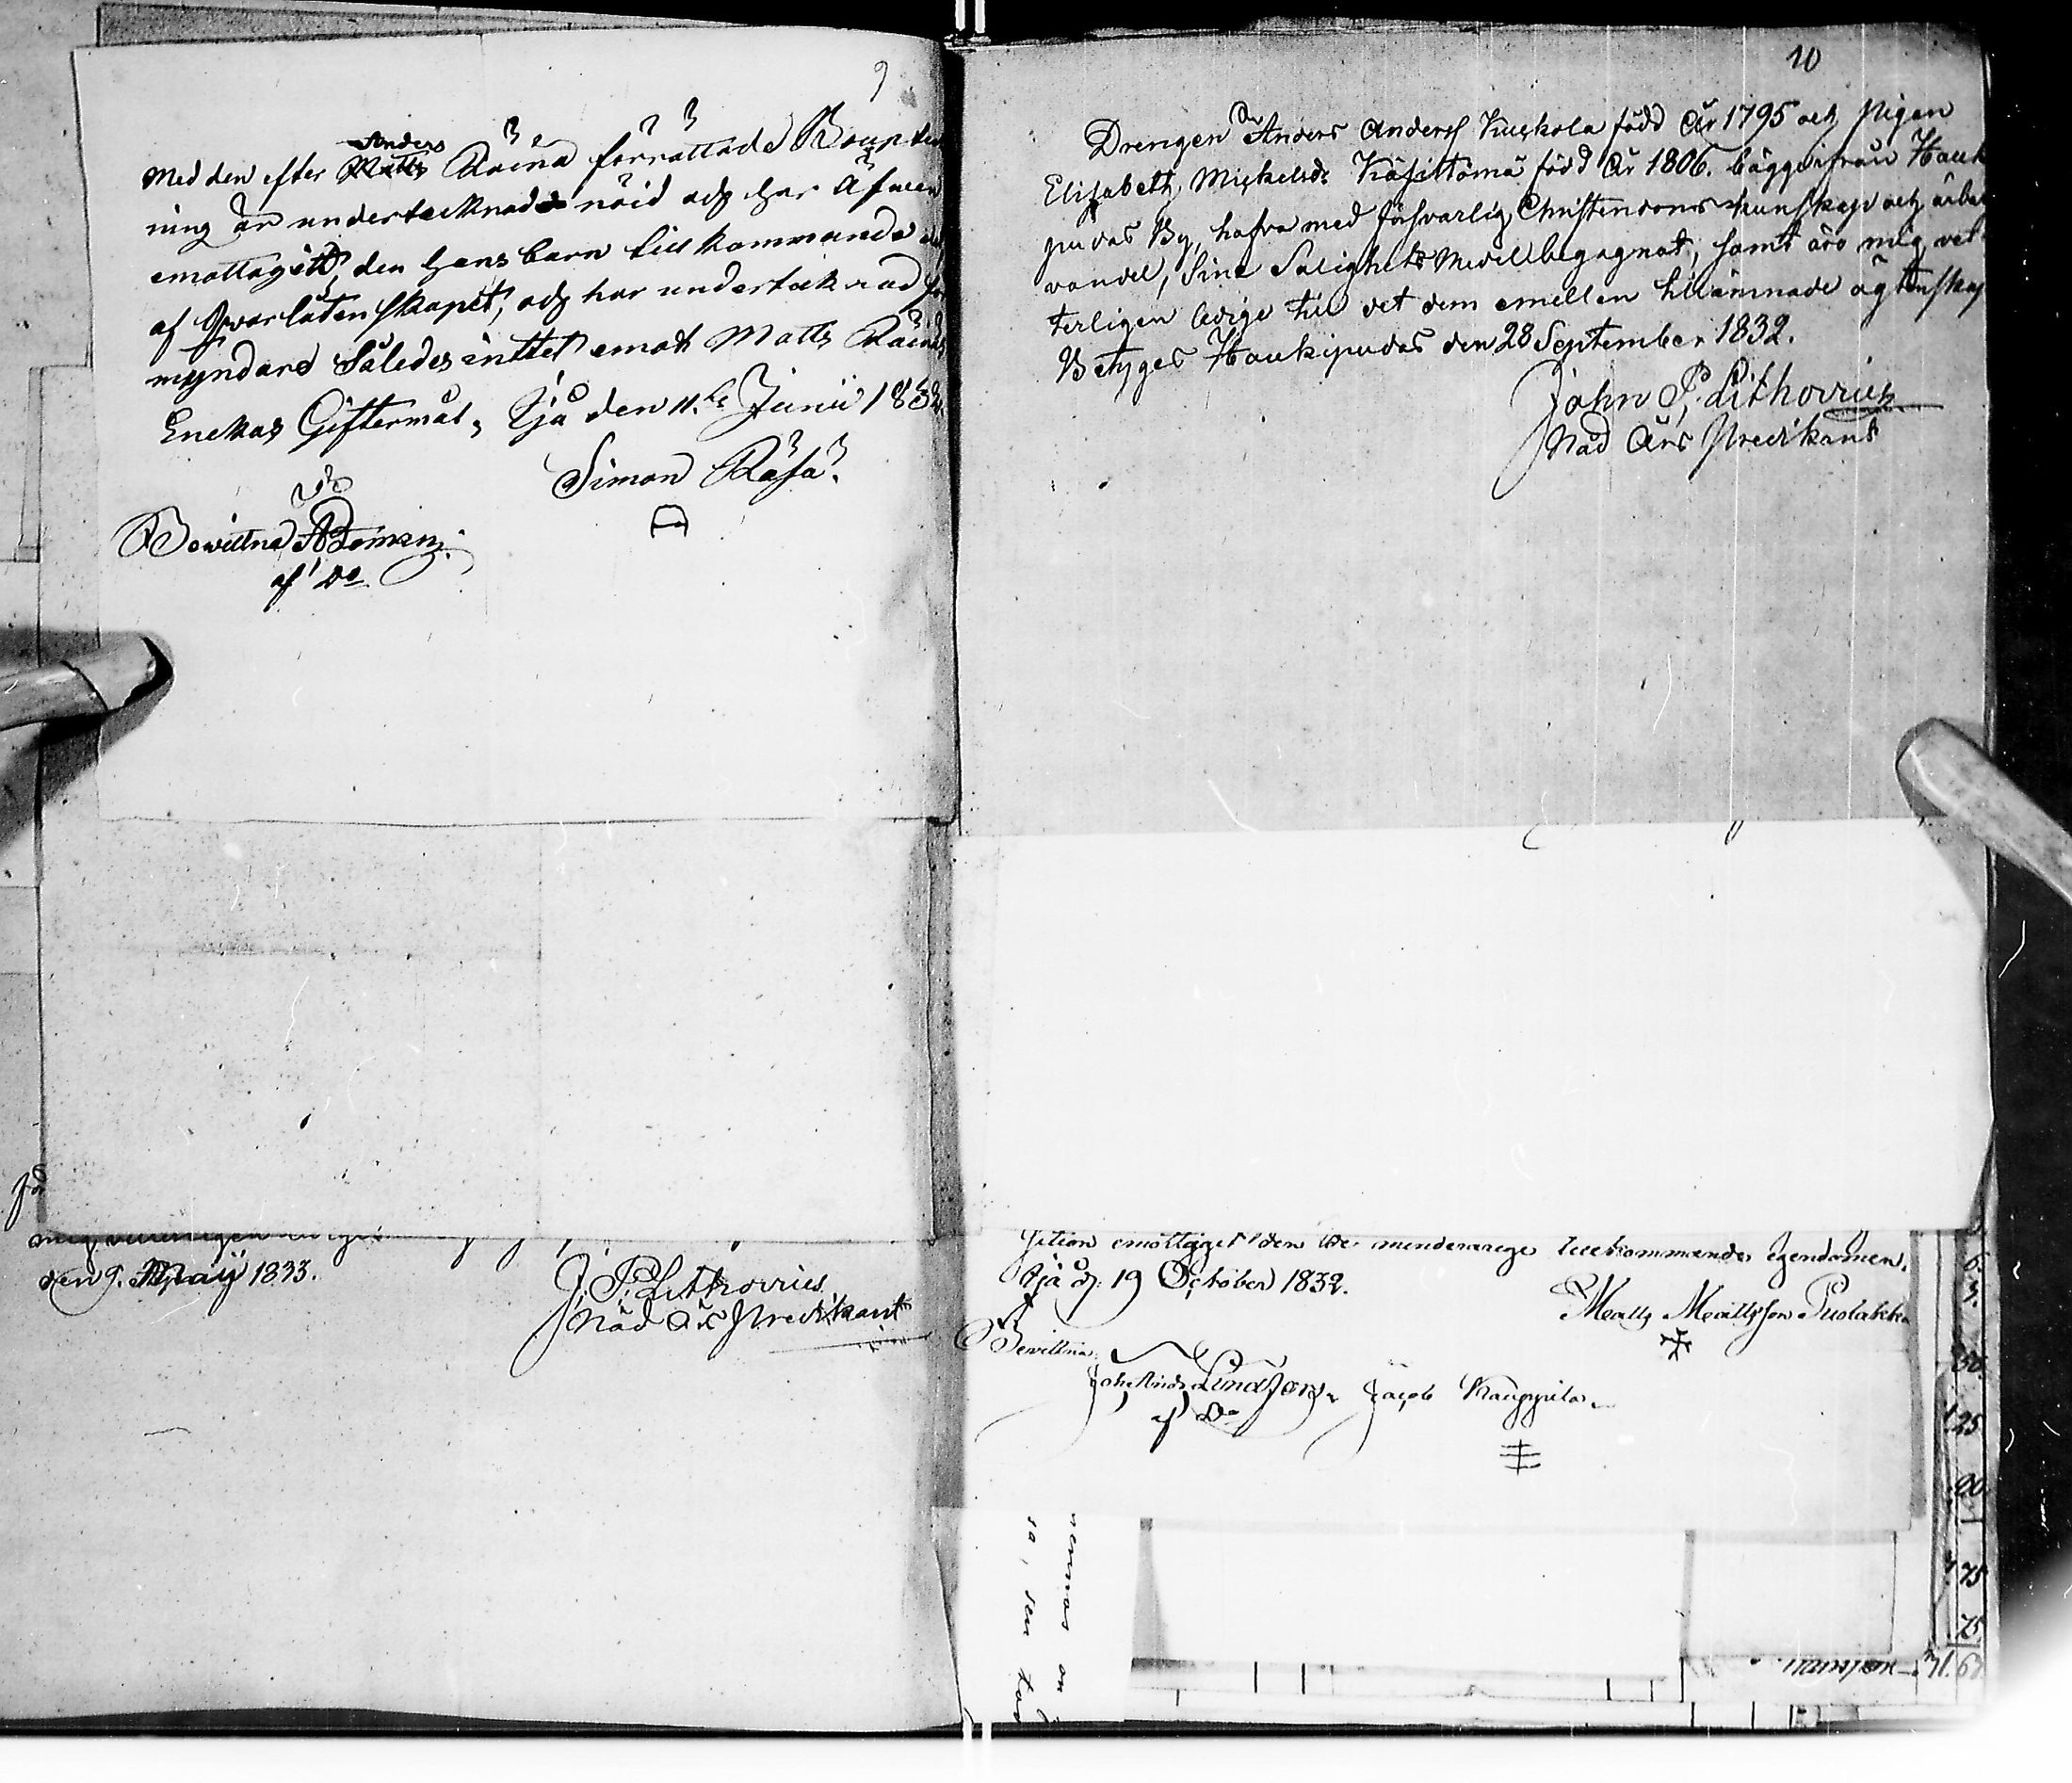 9
Anders
Med den efter Matts Raina förrättade Boupteck
ning är undertecknad nöid och har äfven
emottagitt den hans barn tillkommande
af Qvarlåtenskapet, och har undertecknad
myndare Således inttet emot Matts Raina
Enckas Giftermål, Ijå den 11.te Junii 1832.
Simon Räsä.
Bewittna
af Do
den 9. May 1833.
J. P. Lithovius
Nåd Års Predikant
10
Drengen Anders Anderss Kuiskola född År 1795 och Pigan
Elisabeth Mickelsdr född År 1806. bägge ifrån Hauki
pudas By, hafva med försvarlig Christendoms kunskap och ärbar
vandel, Sine Salighets Medel begagnat, samt äro mig vet-
terligen ledige till det dem emellan tillämnade ägtenskap
Betyges Haukipudas den 28 September 1832.
John P. Lithovius
Nåd Års Predikant
sition emottagit den de minderårige tillkommande egendomen.
Ijå d. 19 October 1832.
Matts Mattsson Puolakka
Bewittna
Joh. Andr. Jacob Kauppila
af Do
6.
3.
30.
125
90
75
75
71.67